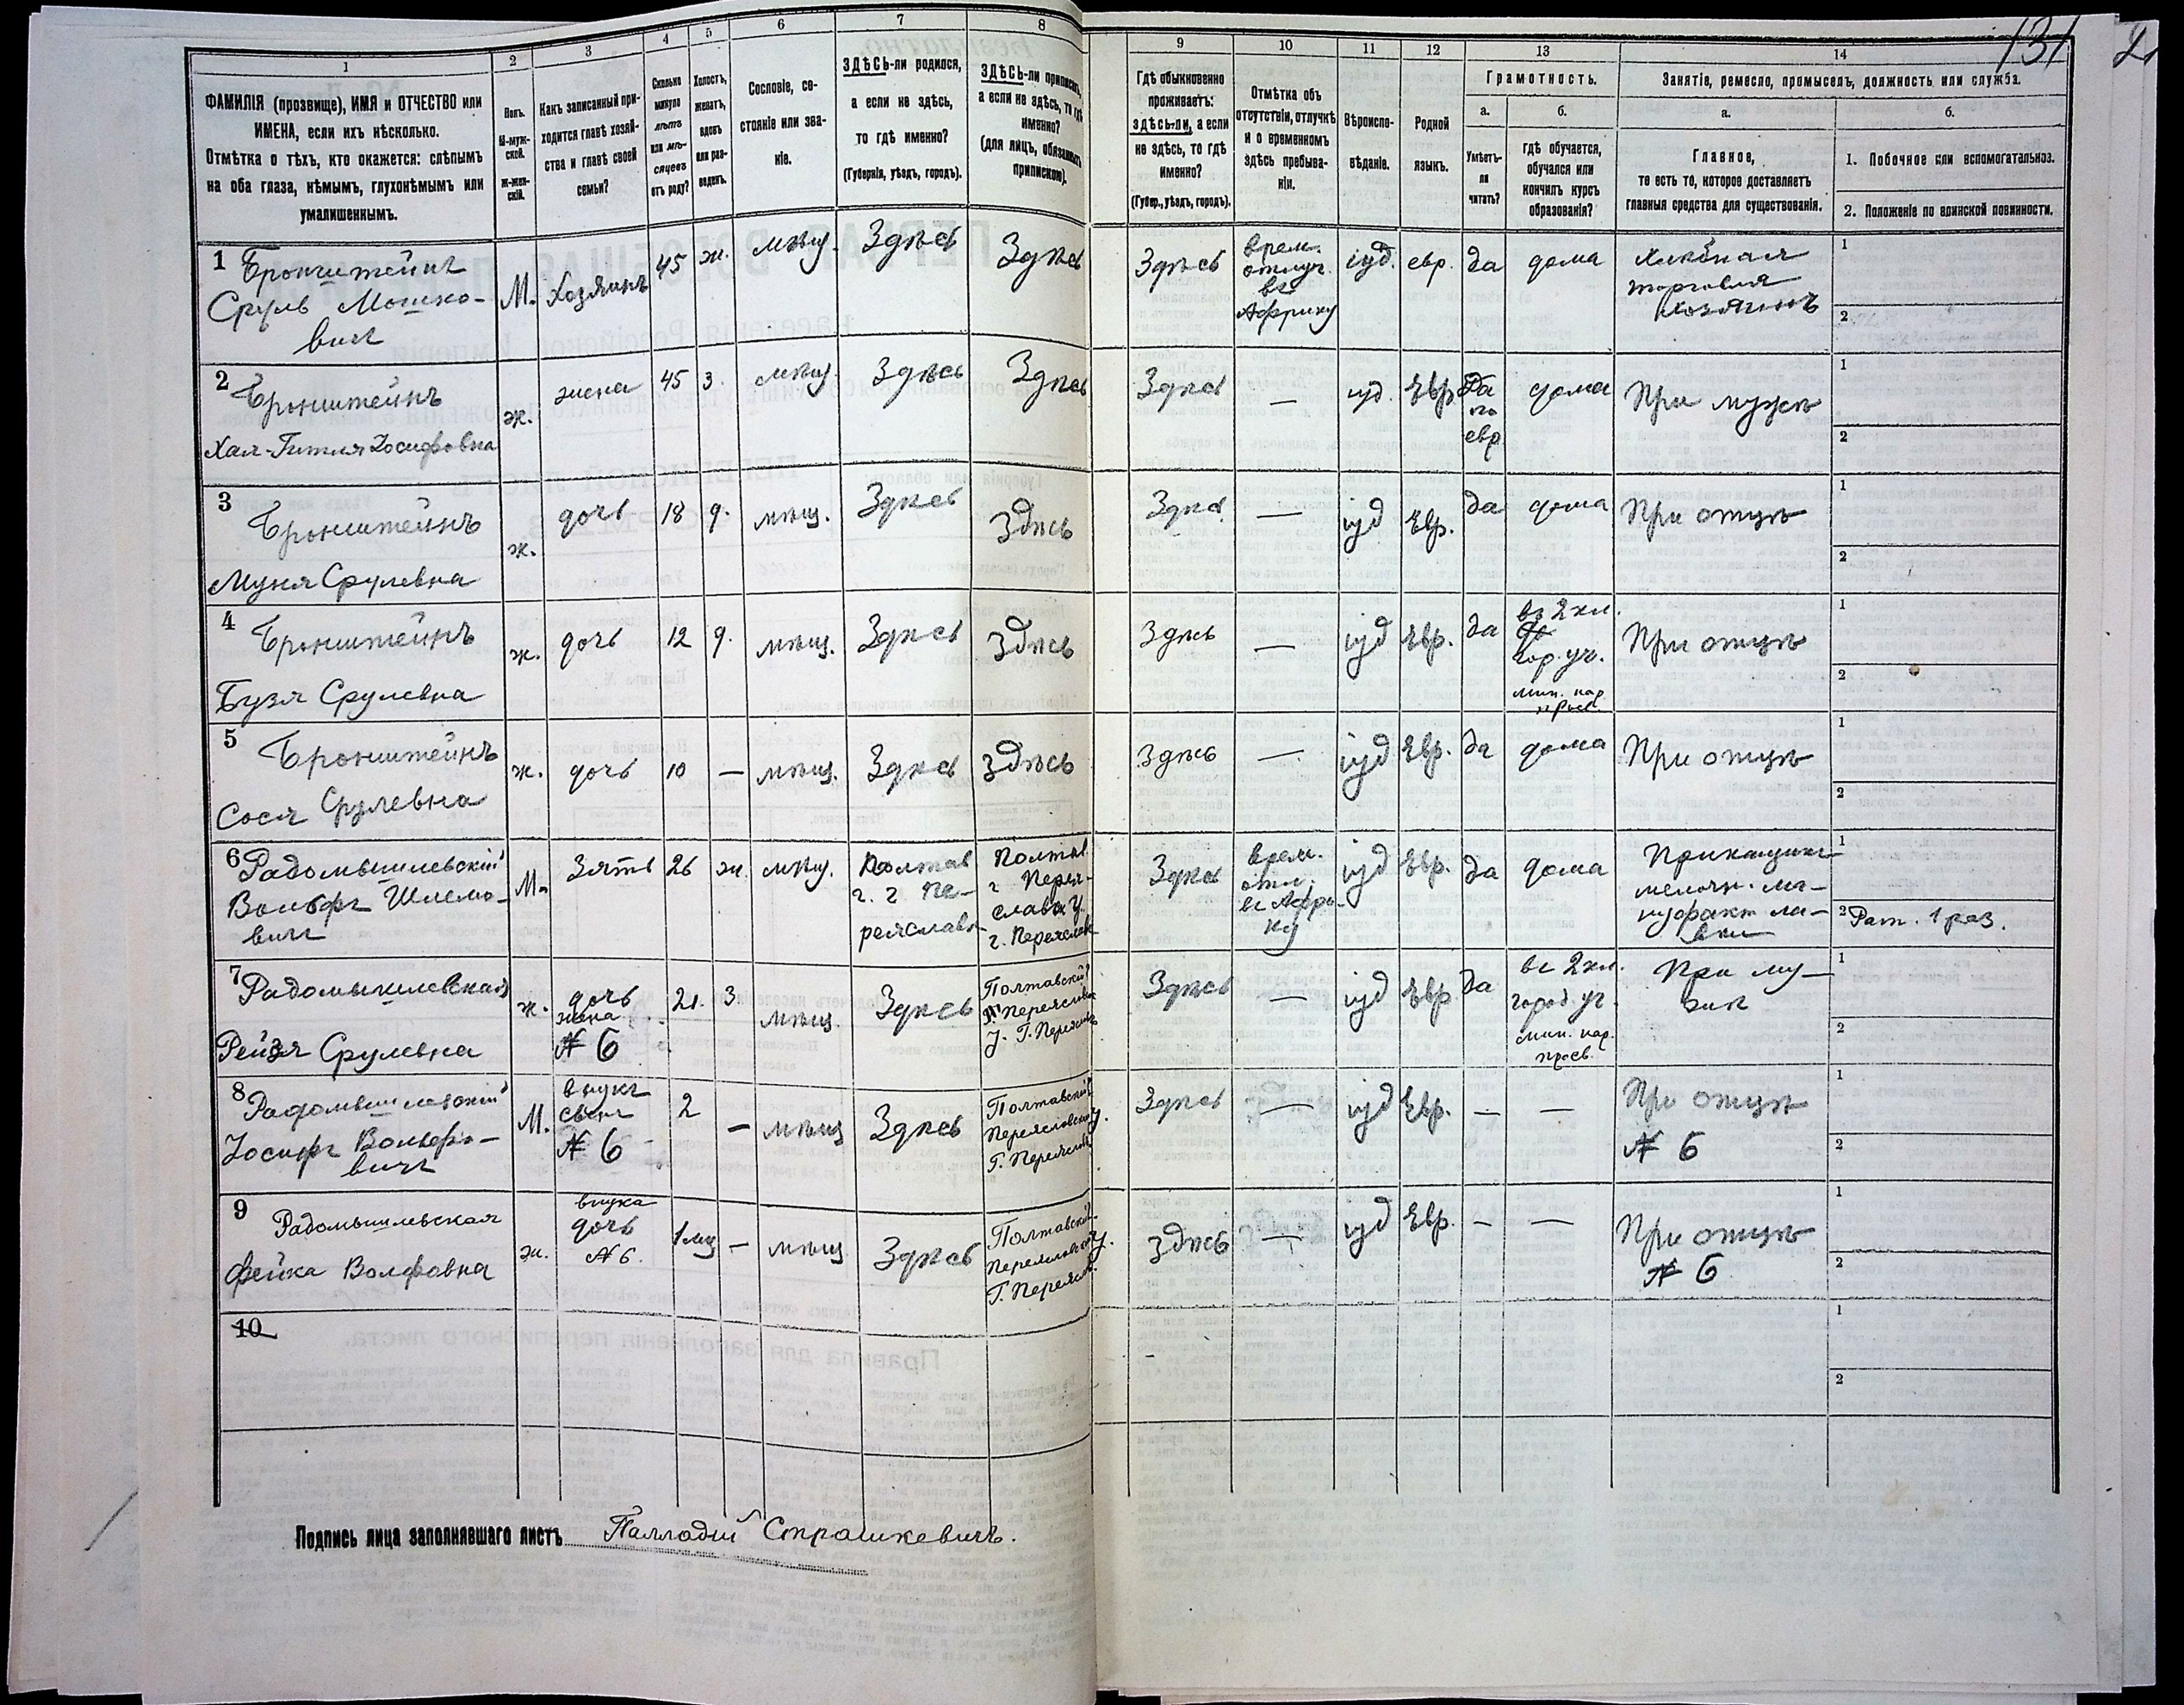 131
1
2
3
4
5
6
7
8
9
10
11
12
13
14
ФАМИЛІЯ (прозвище), ИМЯ и ОТЧЕСТВО или
ИМЕНА, если ихъ нѣсколько.
Отмѣтка о тѣхъ, кто окажется: слѣпымъ
на оба глаза, нѣмымъ, глухонѣмымъ или
умалишеннымъ.
Полъ.
М-муж-
ской.
ж-жен-
скій.
Какъ записанный при-
ходится главѣ хозяй-
ства и главѣ своей
семьи?
Сколько
минуло
лѣтъ
или мѣ-
сяцевъ
отъ роду?
Холостъ,
женатъ,
вдовъ
или раз-
веденъ.
Сословіе, со-
стояніе или зва-
ніе.
ЗДѢСЬ-ли родился,
а если не здѣсь,
то гдѣ именно?
(Губернія, уѣздъ, городъ).
ЗДѢСЬ-ли приписанъ,
а если не здѣсь, то гдѣ
именно?
(для лицъ, обязанныхъ
припискою).
Гдѣ обыкновенно
проживаетъ:
здѣсь-ли, а если
не здѣсь, то гдѣ
именно?
(Губер., уѣздъ, городъ).
Отмѣтка объ
отсутствіи, отлучкѣ
и о временномъ
здѣсь пребыва-
ніи.
Вѣроиспо-
вѣданіе.
Родной
языкъ.
Грамотность.
а.
Умѣетъ-
ли
читать?
б.
гдѣ обучается,
обучался или
кончилъ курсъ
образованія?
Занятіе, ремесло, промыселъ, должность или служба.
а.
Главное,
то есть то, которое доставляетъ
главныя средства для существованія.
б.
1. Побочное или вспомогательное.
2. Положеніе по воинской повинности.
1 Бронштейнъ
Сруль Мошко-
вич
М.
Хозяинъ
45
ж.
мѣщ.
Здѣсь
Здѣсь
Здѣсь
врем.
отлуч.
въ
Африку
іуд.
евр.
да
дома
Хлѣбная
торговля
хозяинъ
1
2
2 Бронштейнъ
Хая-Гитля Іосифовна
ж.
жена
45
з.
мѣщ.
Здѣсь
Здѣсь
Здѣсь
—
іуд.
Евр.
Да
по
евр
дома
При мужѣ
1
2
3 Бронштейнъ
Муня Срулевна
ж.
дочь
18
д.
мѣщ.
Здѣсь
Здѣсь
Здѣсь
—
іуд
Евр.
да
дома
При отцѣ
1
2
4 Бронштейнъ
Бузя Срулевна
ж.
дочь
12
д.
мѣщ.
Здѣсь
Здѣсь
Здѣсь
—
іуд
Евр.
да
въ 2 кл.
гор. уч.
мин. нар
просв.
При отцѣ
1
2
5 Бронштейнъ
Сося Срулевна
ж.
дочь
10
—
мѣщ.
Здѣсь
Здѣсь
Здѣсь
—
іуд
Евр.
да
дома
При отцѣ
1
2
6 Радомышлевскій
Вольфъ Шлемо-
вич
М.
Зять
26
ж.
мѣщ.
Полтав
г. г Пе-
реяславъ
Полтав
г Перея-
слав у
г. Переяслав
Здѣсь
врем.
отл.
въ Афри-
ку
іуд
Евр.
да
дома
Прикащикъ
мелочн. ма-
нуфакт ла-
вки
1
2 Рат. 1 раз.
7 Радомышлевская
Рейзя Срулевна
ж.
дочь
жена
№ 6
21.
З
мѣщ.
Здѣсь
Полтавскій
Г. Переяслав
у. Г. Переяслав
Здѣсь
—
іуд
Евр
да
въ 2 кл.
город уч.
мин. нар.
просв.
При му-
жѣ
1
2
8 Радомышлевскій
Іосифъ Вольфо-
вичъ
М.
внукъ
сынъ
№ 6
2
—
мѣщ
Здѣсь
Полтавской
Переяславской у.
Г. Переяслав
Здѣсь
—
іуд
Евр.
—
—
При отцѣ
№ 6
1
2
9 Радомышлевская
Фейка Волфовна
ж.
внука
дочь
№ 6.
1 мц
—
мѣщ
Здѣсь
Полтавской
Переяславской у.
Г. Переяслав
Здѣсь
—
іуд
Евр.
—
—
При отцѣ
№ 6
1
2
10
1
2
Подпись лица заполнявшаго листъ Палладій Страшкевичъ.